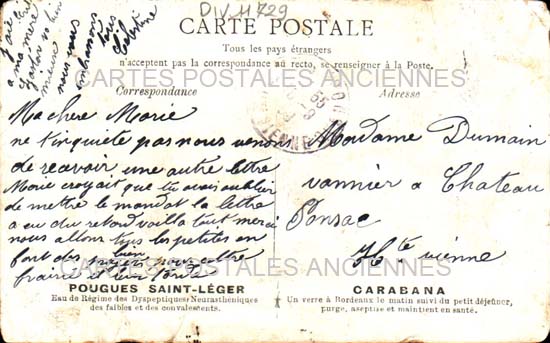 DIV 11729
CARTE POSTALE
Tous les pays étrangers
n'acceptent pas la correspondance au recto, se renseigner à la Poste.
CARTES POSTALES ANCIENNES
Correspondance
Adresse
a ma mere
mieux
nous vous
embrassons
tous
Célestine
Ma chere Marie
ne t'inquiète pas nous venons
de recevoir une autre lettre
Marie croyait que tu avais oublier
de mettre le mandat la lettre
a eu du retard voilla tout merci
nous allons tous les petites en
font des
bien
pour
Madame Dumain
vannier a Chateau
Ponsac
Hte vienne
CARTES POSTALES ANCIENNES
POUGUES SAINT-LÉGER
Eau de Régime des Dyspeptiques, Neurasthéniques
des faibles et des convalescents.
CARABANA
Un verre à Bordeaux le matin suivi du petit déjeûner,
purge, aseptise et maintient en santé.